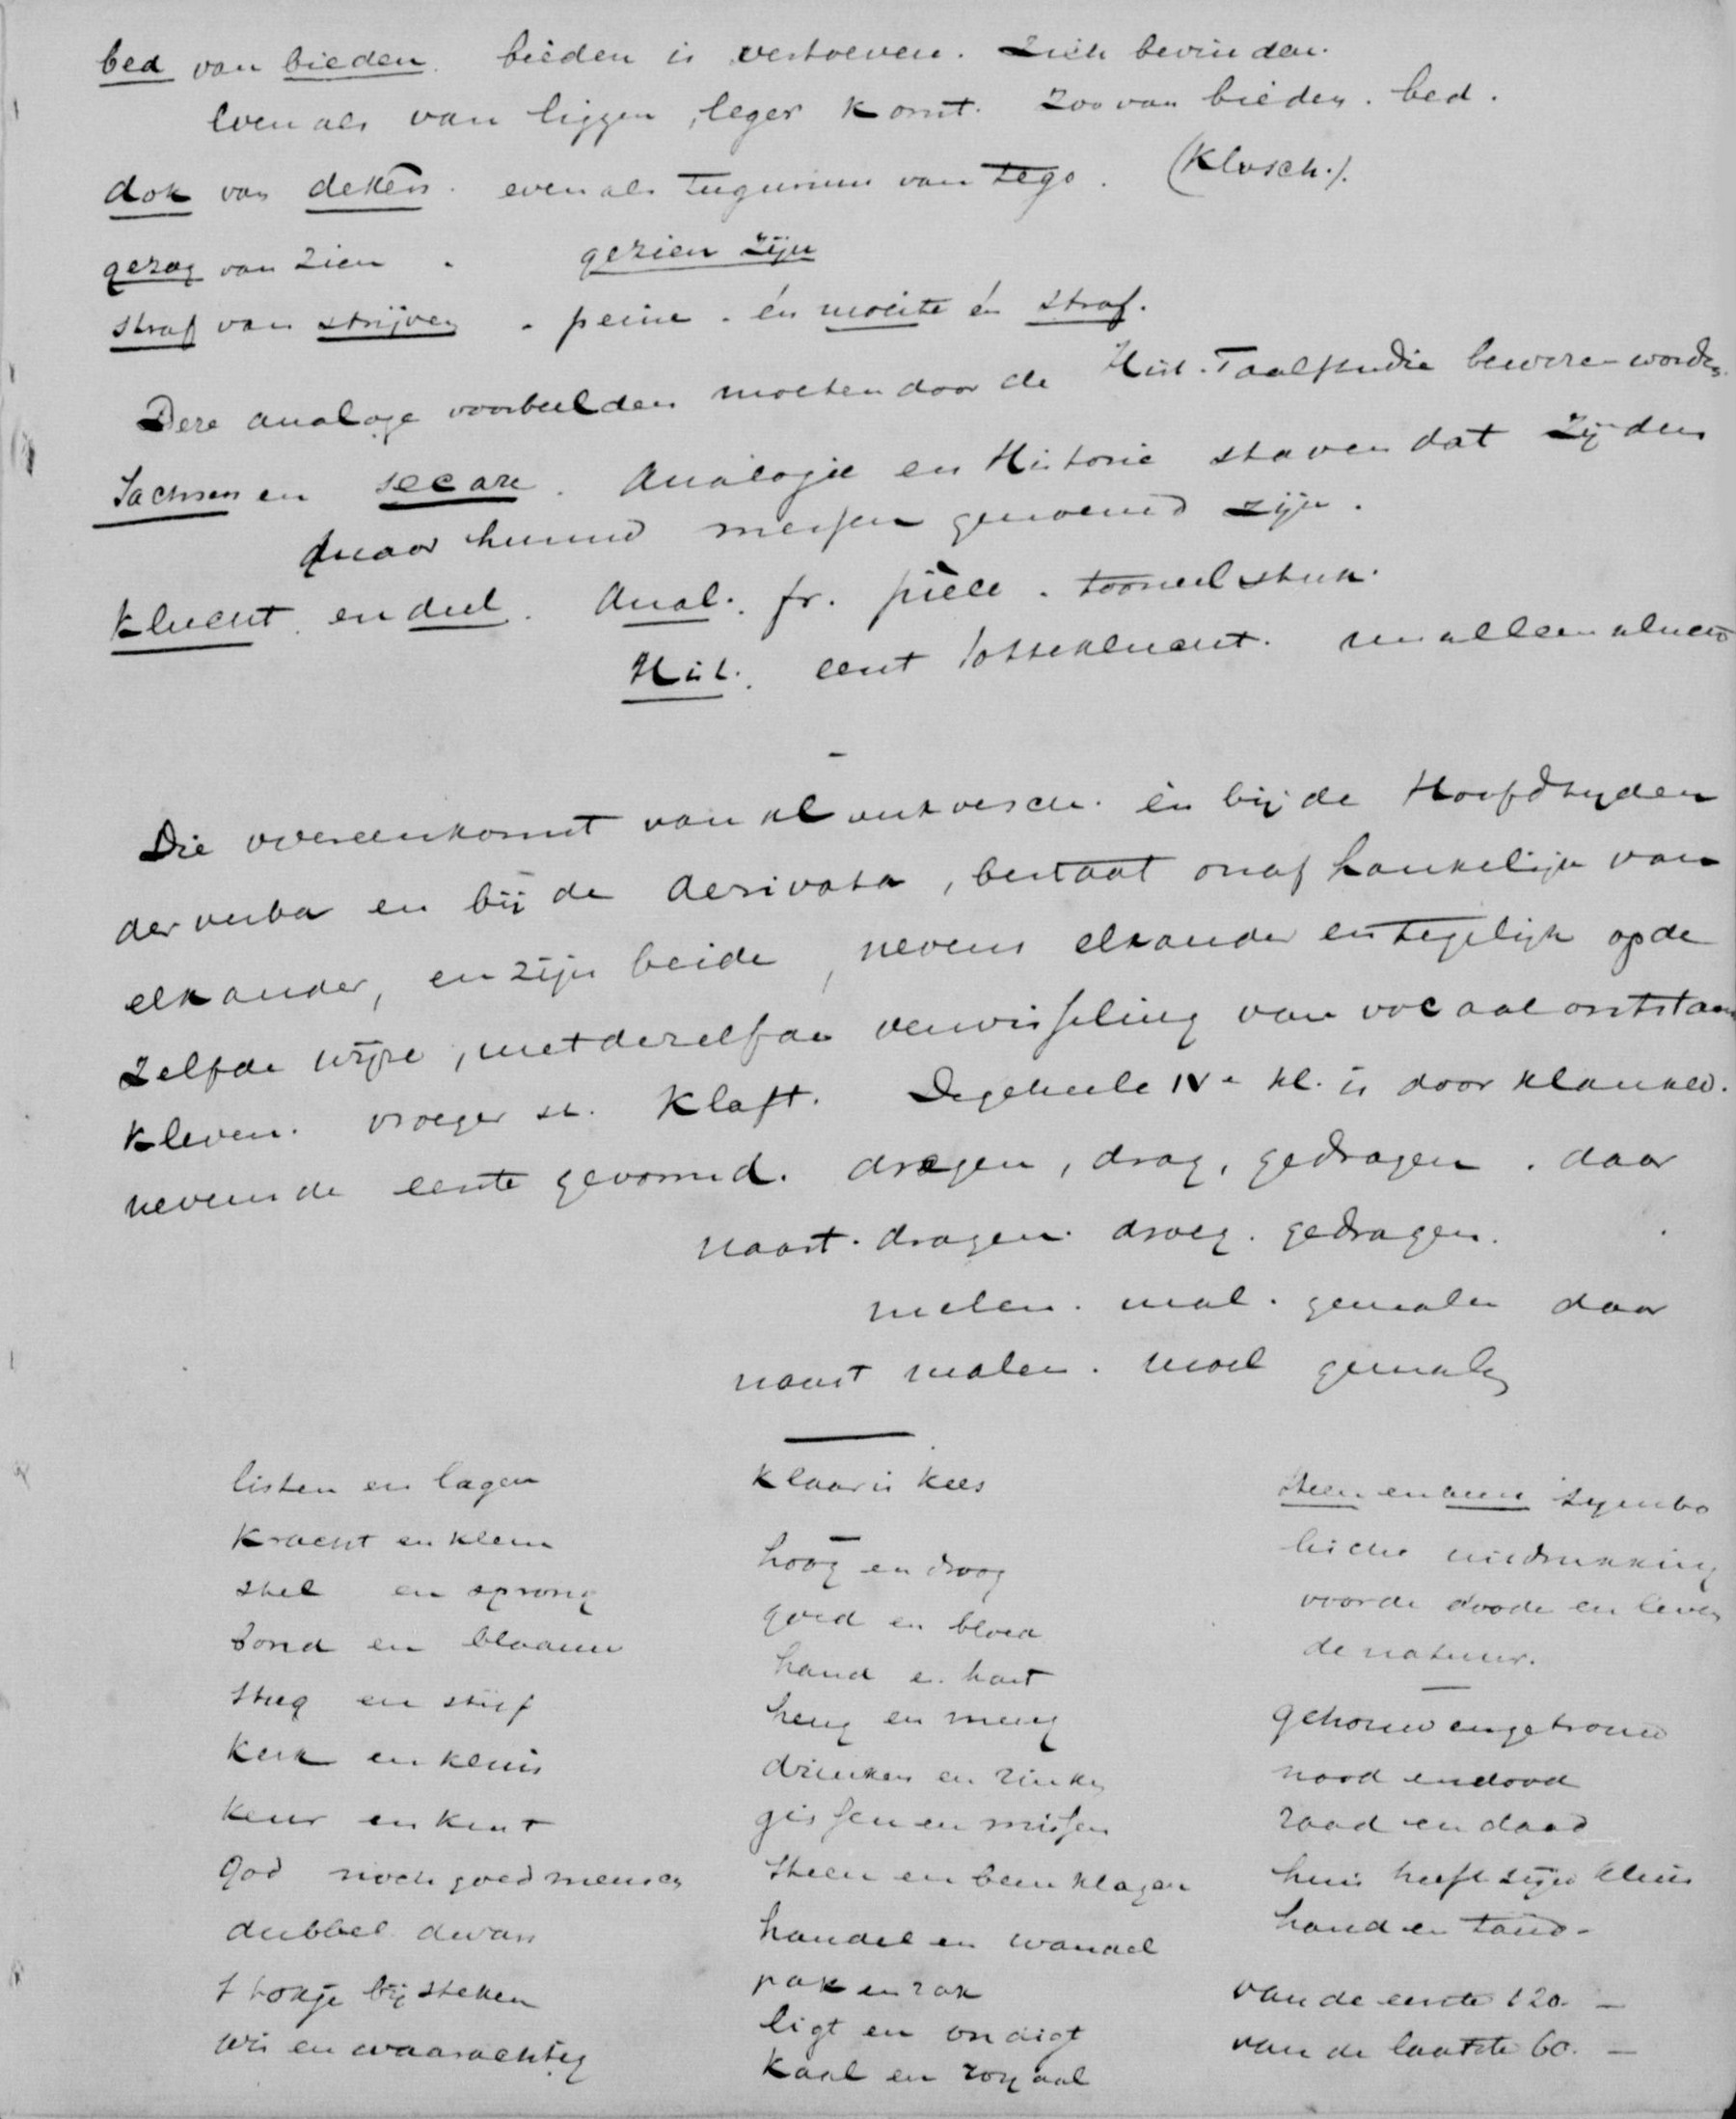 bed van bieden. bieden is vertoeven. zich bevinden.
Even als van liggen, leger komt. zoo van bieden. bed.
dak van deken. even als tugurium van tego. (Klosch.).
gezag van zien. gezien zijn
straf van strijven. peine. én moeite én straf.
Deze analoge voorbeelden moeten door de Hist. Taalstudie bewezen worden.
Sachsen en secare. Analogie en Historie staven dat zij den
naar hunne messen genoemd zijn.
klucht en deel. Anal. fr. pièce. tooneelstuk.
Hist. eerst sotteklucht. nu alleen klucht
Die overeenkomst van klankversch. èn bij de Hoofdtijden
der verba en bij de derivata, bestaat onafhankelijk van
elkander, en zijn beide, nevens elkander en tegelijk op de
zelfde wijze, met dezelfde verwisseling van vocaal ontstaan
kleven. vroeger st. klaft. De geheele IVe kl. is door klankv.
nevens de eerste gevormd. dregen, drag, gedragen. daar
naast. dragen. droeg. gedragen.
melen. mal. gemalen daar
naast malen. moel gemalen
listen en lagen
kracht en klem
stel en sprong
bond en blaauw
stug en stijf
kerk en kluis
keur en keut
God noch goed mensch
dubbel dwars
t hoekje bij steken
wis en waarachtig
klaar is kees
hoog en droog
goed en bloed
hand en hart
heug en meug
drinken en zinken
gissen en missen
steen en been klagen
handel en wandel
pak en zak
ligt en ondigt
kaal en rojaal
steen en been symbo
lische uitdrukking
voor de doode en leven
de natuur.
gehouw en getrouw
nood en dood
raad en daad
huis heeft zijn kluis
hand en tand.
van de eerste 120. —
van de laatste 60. —